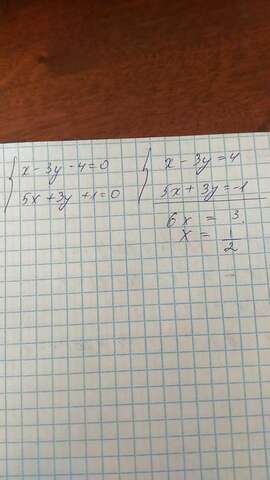 x - 3y - 4 = 0
5x + 3y + 1 = 0
x - 3y = 4
5x + 3y = -1
6x = 3
x = 1/2